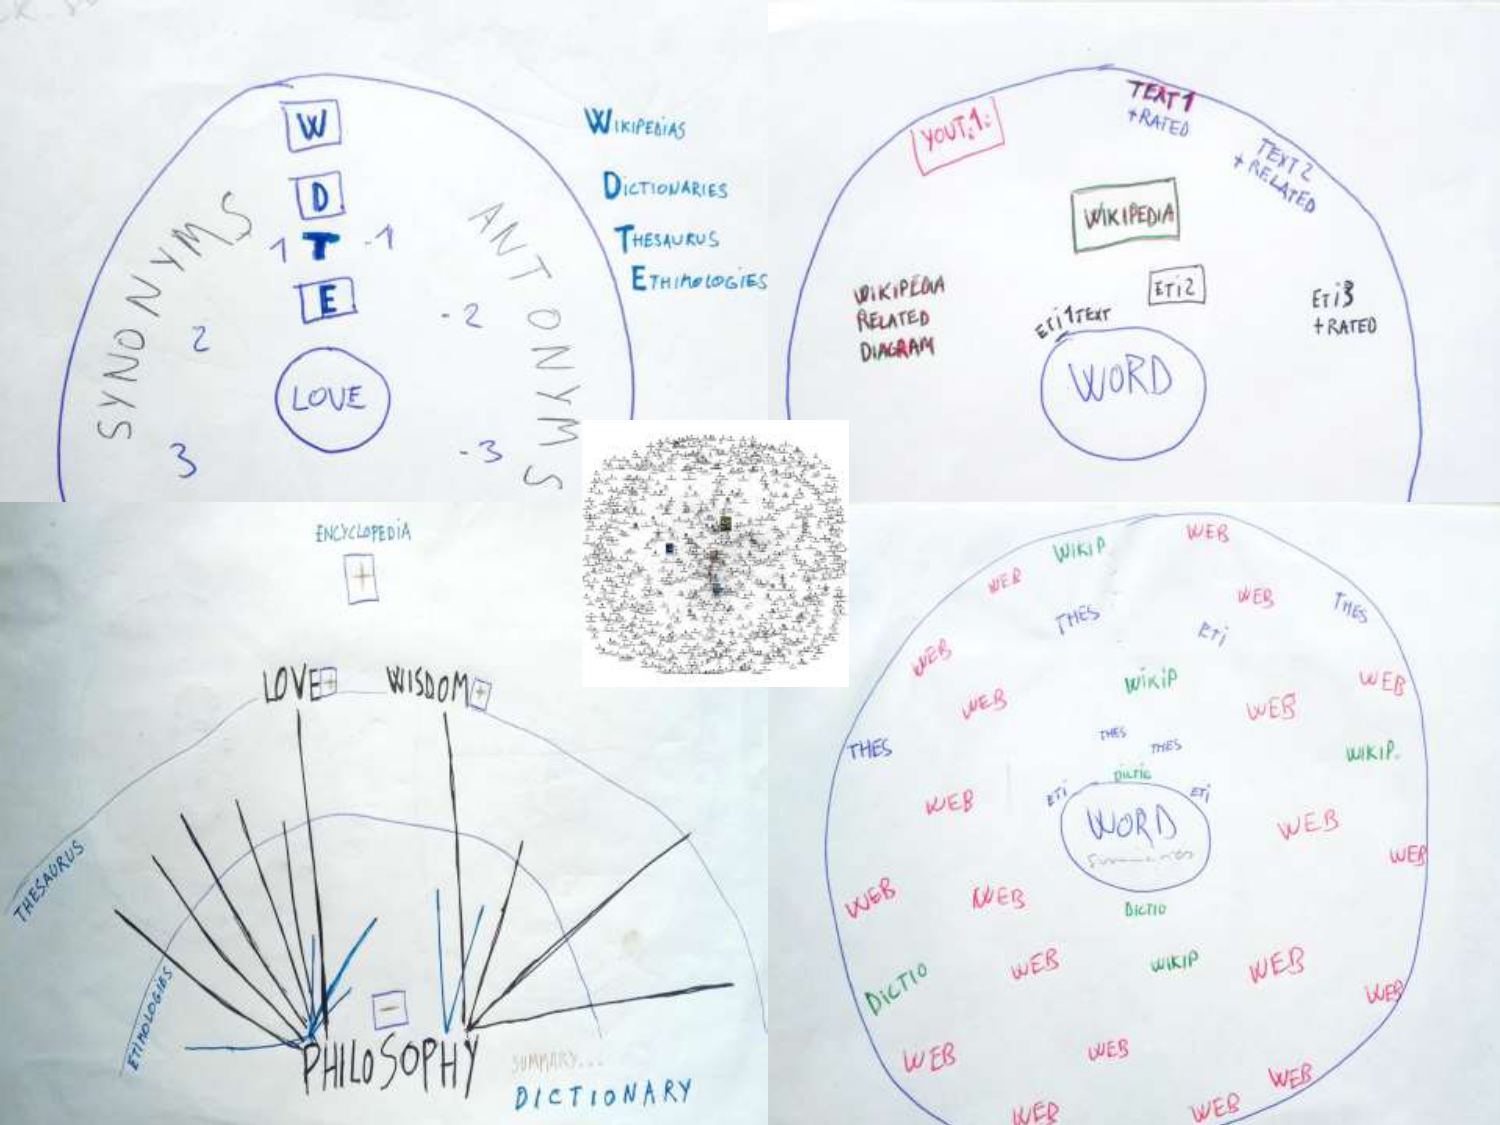 W
D
1 T -1
E
2
-2
3
-3
LOVE
SYNONYMS
ANTONYMS
WIKIPEDIAS
DICTIONARIES
THESAURUS
ETHIMOLOGIES
YOUT.1:
TEXT 1
+RATED
TEXT 2
+ RELATED
WIKIPEDIA
WIKIPEDIA
RELATED
DIAGRAM
ETi1TEXT
ETi2
ETi3
+RATED
WORD
ENCYCLOPEDIA
+
LOVE +
WISDOM +
THESAURUS
ETIMOLOGIES
-
PHILOSOPHY
SUMMARY...
DICTIONARY
WIKIP
WEB
WEB
WEB
THES
THES
ETi
WEB
WIKIP
WEB
WEB
WEB
THES
THES
THES
WIKIP.
DICTIO
ETi
ETi
WEB
WORD
WEB
WEB
WEB
WEB
DICTIO
DICTIO
WEB
WIKIP
WEB
WEB
WEB
WEB
WEB
WEB
WEB